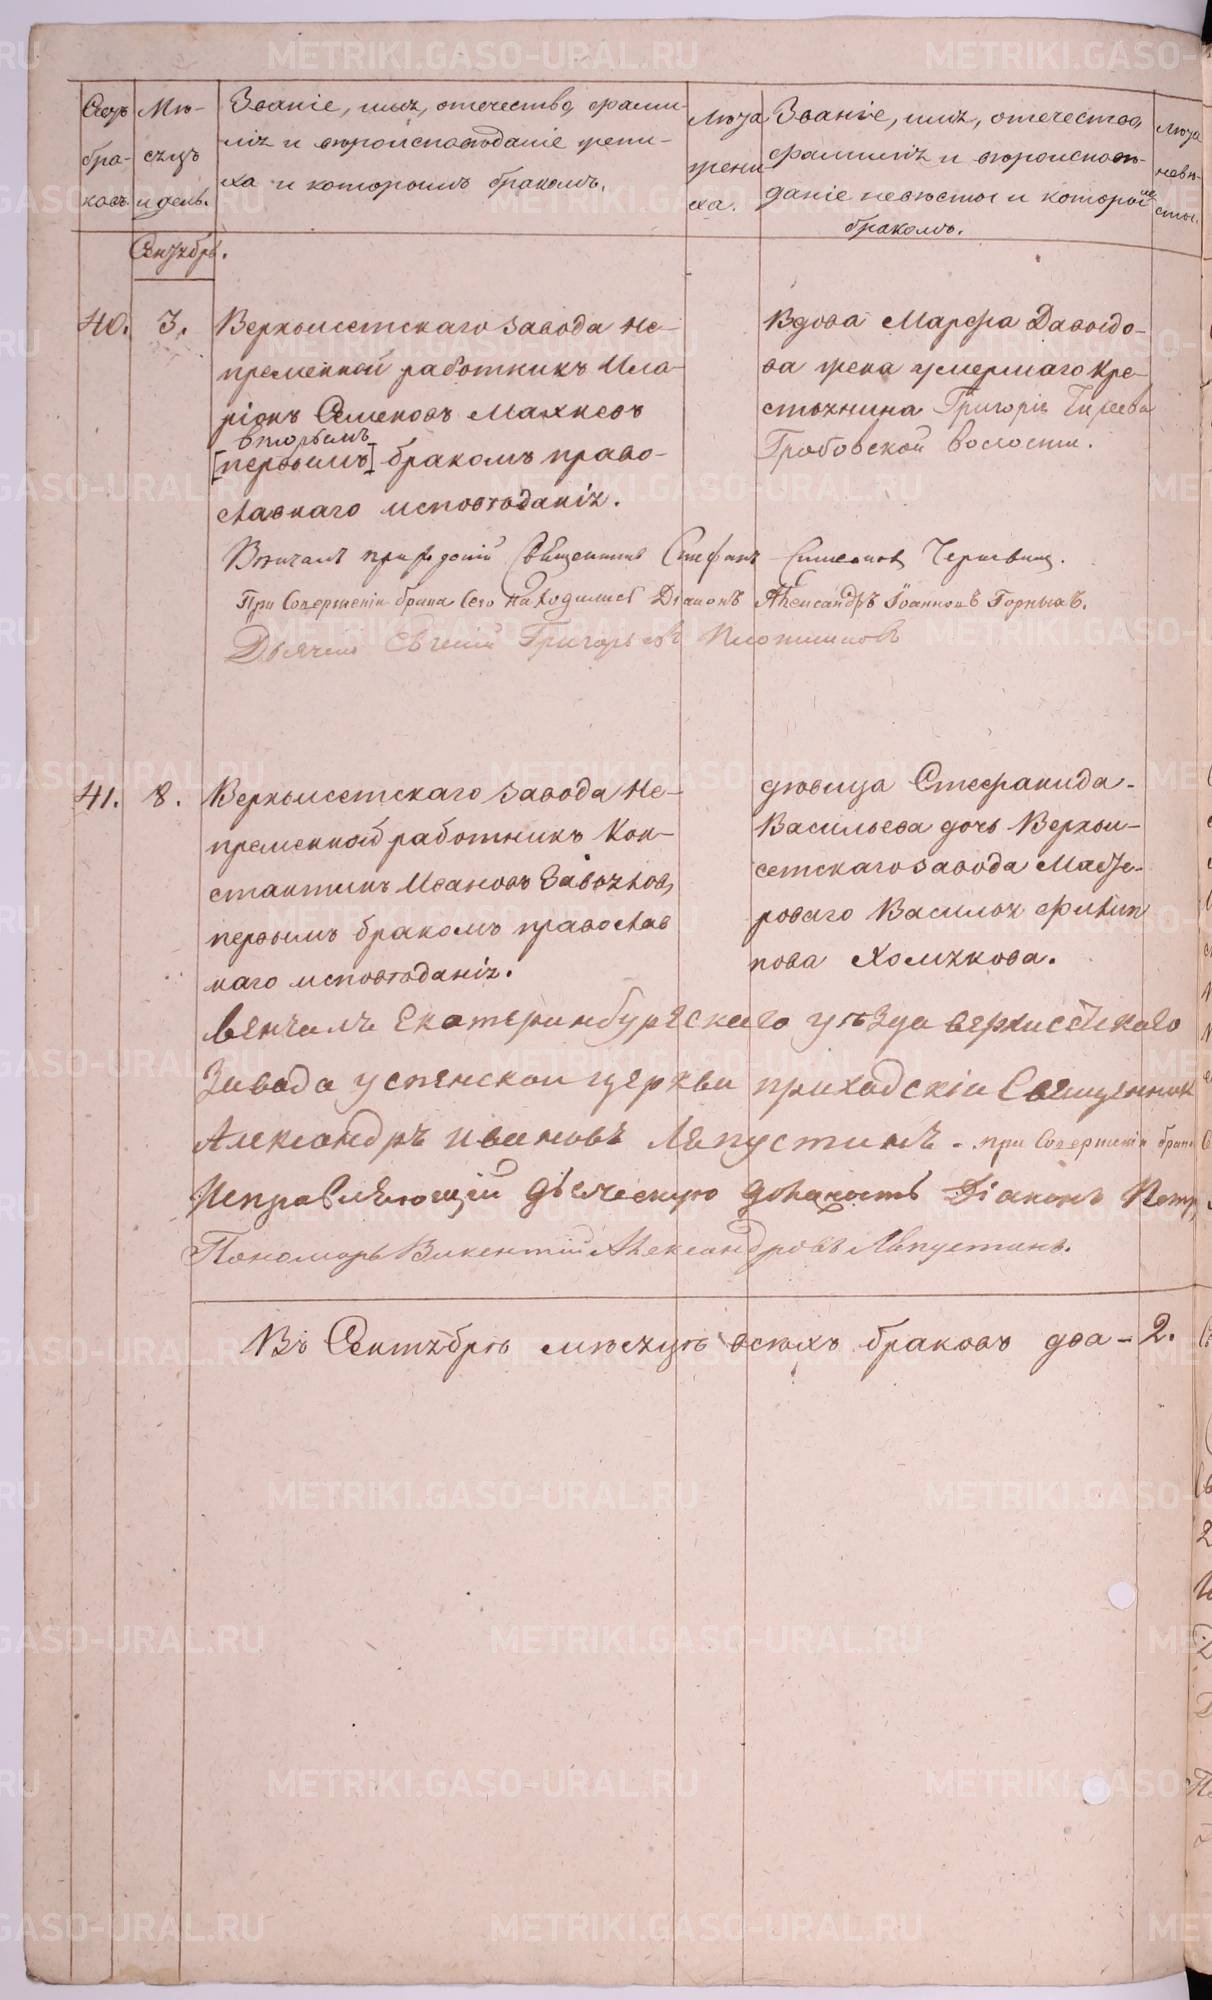 Счетъ браковъ.
Мѣсяцъ и день.
Званіе, имя, отечество, фамилія и вѣроисповѣданіе жениха и которымъ бракомъ.
Лѣта жениха.
Званіе, имя, отечество, фамилія и вѣроисповѣданіе невѣсты и которымъ бракомъ.
Лѣта невѣсты.
Сентябрь.
40.
3.
Верхъисетскаго завода не-
пременной работникъ Ила-
ріонъ Семеновъ
вторымъ
[первымъ] бракомъ право-
славнаго исповѣданія.
Вдова Марфа Давыдо-
ва жена умершаго кре-
стьянина Григорія
Гробовской волости.
Вѣнчалъ приходскій Священникъ Стефанъ Симеоновъ
При Совершеніи брака Сего находились Діаконъ Александръ Іоанновъ Горныхъ.
Дьячекъ Евгеній Григорьевъ Плотниковъ
41.
8.
Верхъисетскаго завода не-
пременной работникъ Кон-
стантинъ Ивановъ
первымъ бракомъ православ
наго исповѣданія.
дѣвица Стефанида
Васильева дочь Верхъи-
сетскаго завода Масте-
роваго Василья Филип
пова Хомякова.
Венчалъ Екатеринбургскаго уѣзда верхисетскаго
Завода успенской церкви приходскій Священникъ
Александръ Ивановъ Лапустинъ - при Совершеніи брака
Исправляющій дьяческую должность Діаконъ Петр
Пономарь Викентій Александровъ Лапустинъ.
Въ Сентябрѣ мѣсяцѣ всѣхъ браковъ два - 2.
METRIKI.GASO-URAL.RU